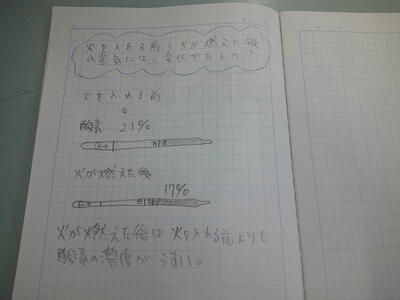 火を入れる前と火が燃えた後
の空気には、変化があるの？
火を入れる前
↓
酸素 21%
火が燃えた後
17%
火が燃えた後は火を入れる前よりも
酸素の濃度がうすい。